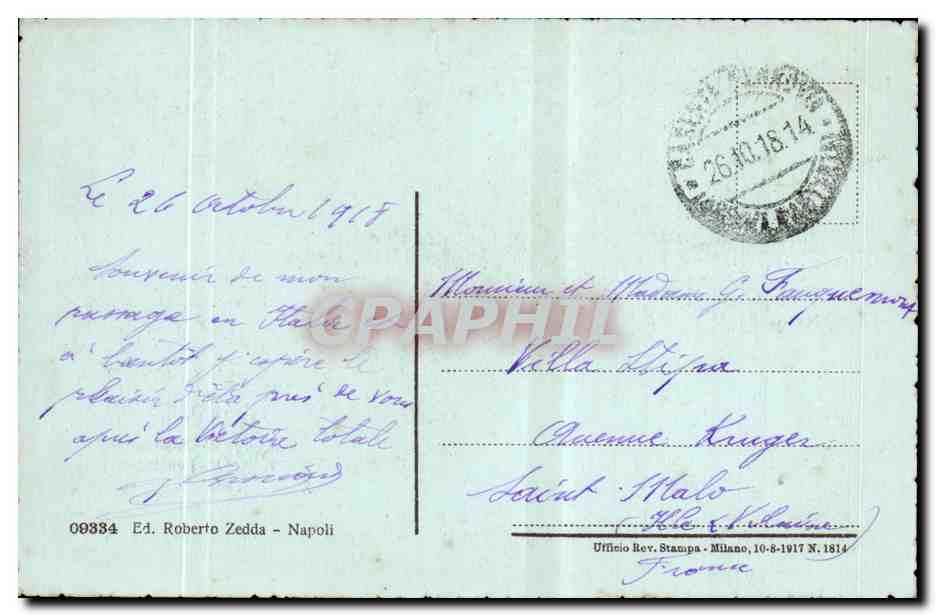 Le 26 Octobre 1918
Souvenir de mon
passage en Italie et
à bientôt j'espère le
plaisir d'être près de vous
après la Victoire totale
09334 Ed. Roberto Zedda - Napoli
26.10.18.14
Monsieur et Madame G. Fauquemont
Villa Stipa
Avenue Kruger
Saint-Malo
(Ille & Vilaine)
France
Ufficio Rev. Stampa - Milano, 10-8-1917 N. 1814
CPAPHIL